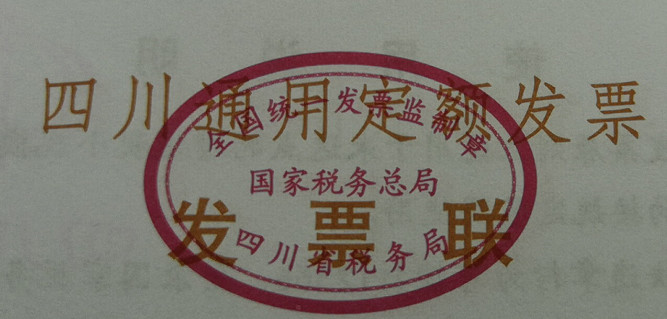 四川通用定额发票
全国统一发票监制章
国家税务总局
发票联
四川省税务局